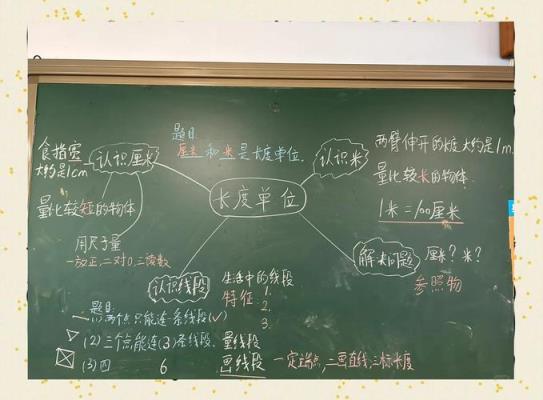 题目:
厘米和米是长度单位.
食指宽
大约是1cm
认识厘米
量比较短的物体
用尺子量
一放正,二对0,三读数
长度单位
认识米
两臂伸开的长度大约是1m.
量比较长的物体
1米=100厘米
解决问题
厘米?米?
参照物
认识线段
生活中的线段
特征:1.
2.
3.
量线段
画线段
一定端点,二画直线,三标长度
题目:
(1)两个点只能连一条线段(✓)
(2)三个点能连(3)条线段.
(3)四
6